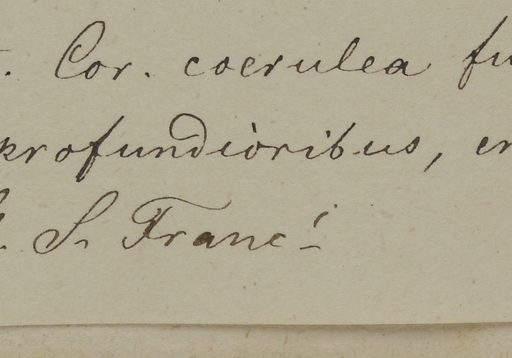 . Cor. coerulea fu
profundioribus, en
. S. Franc.